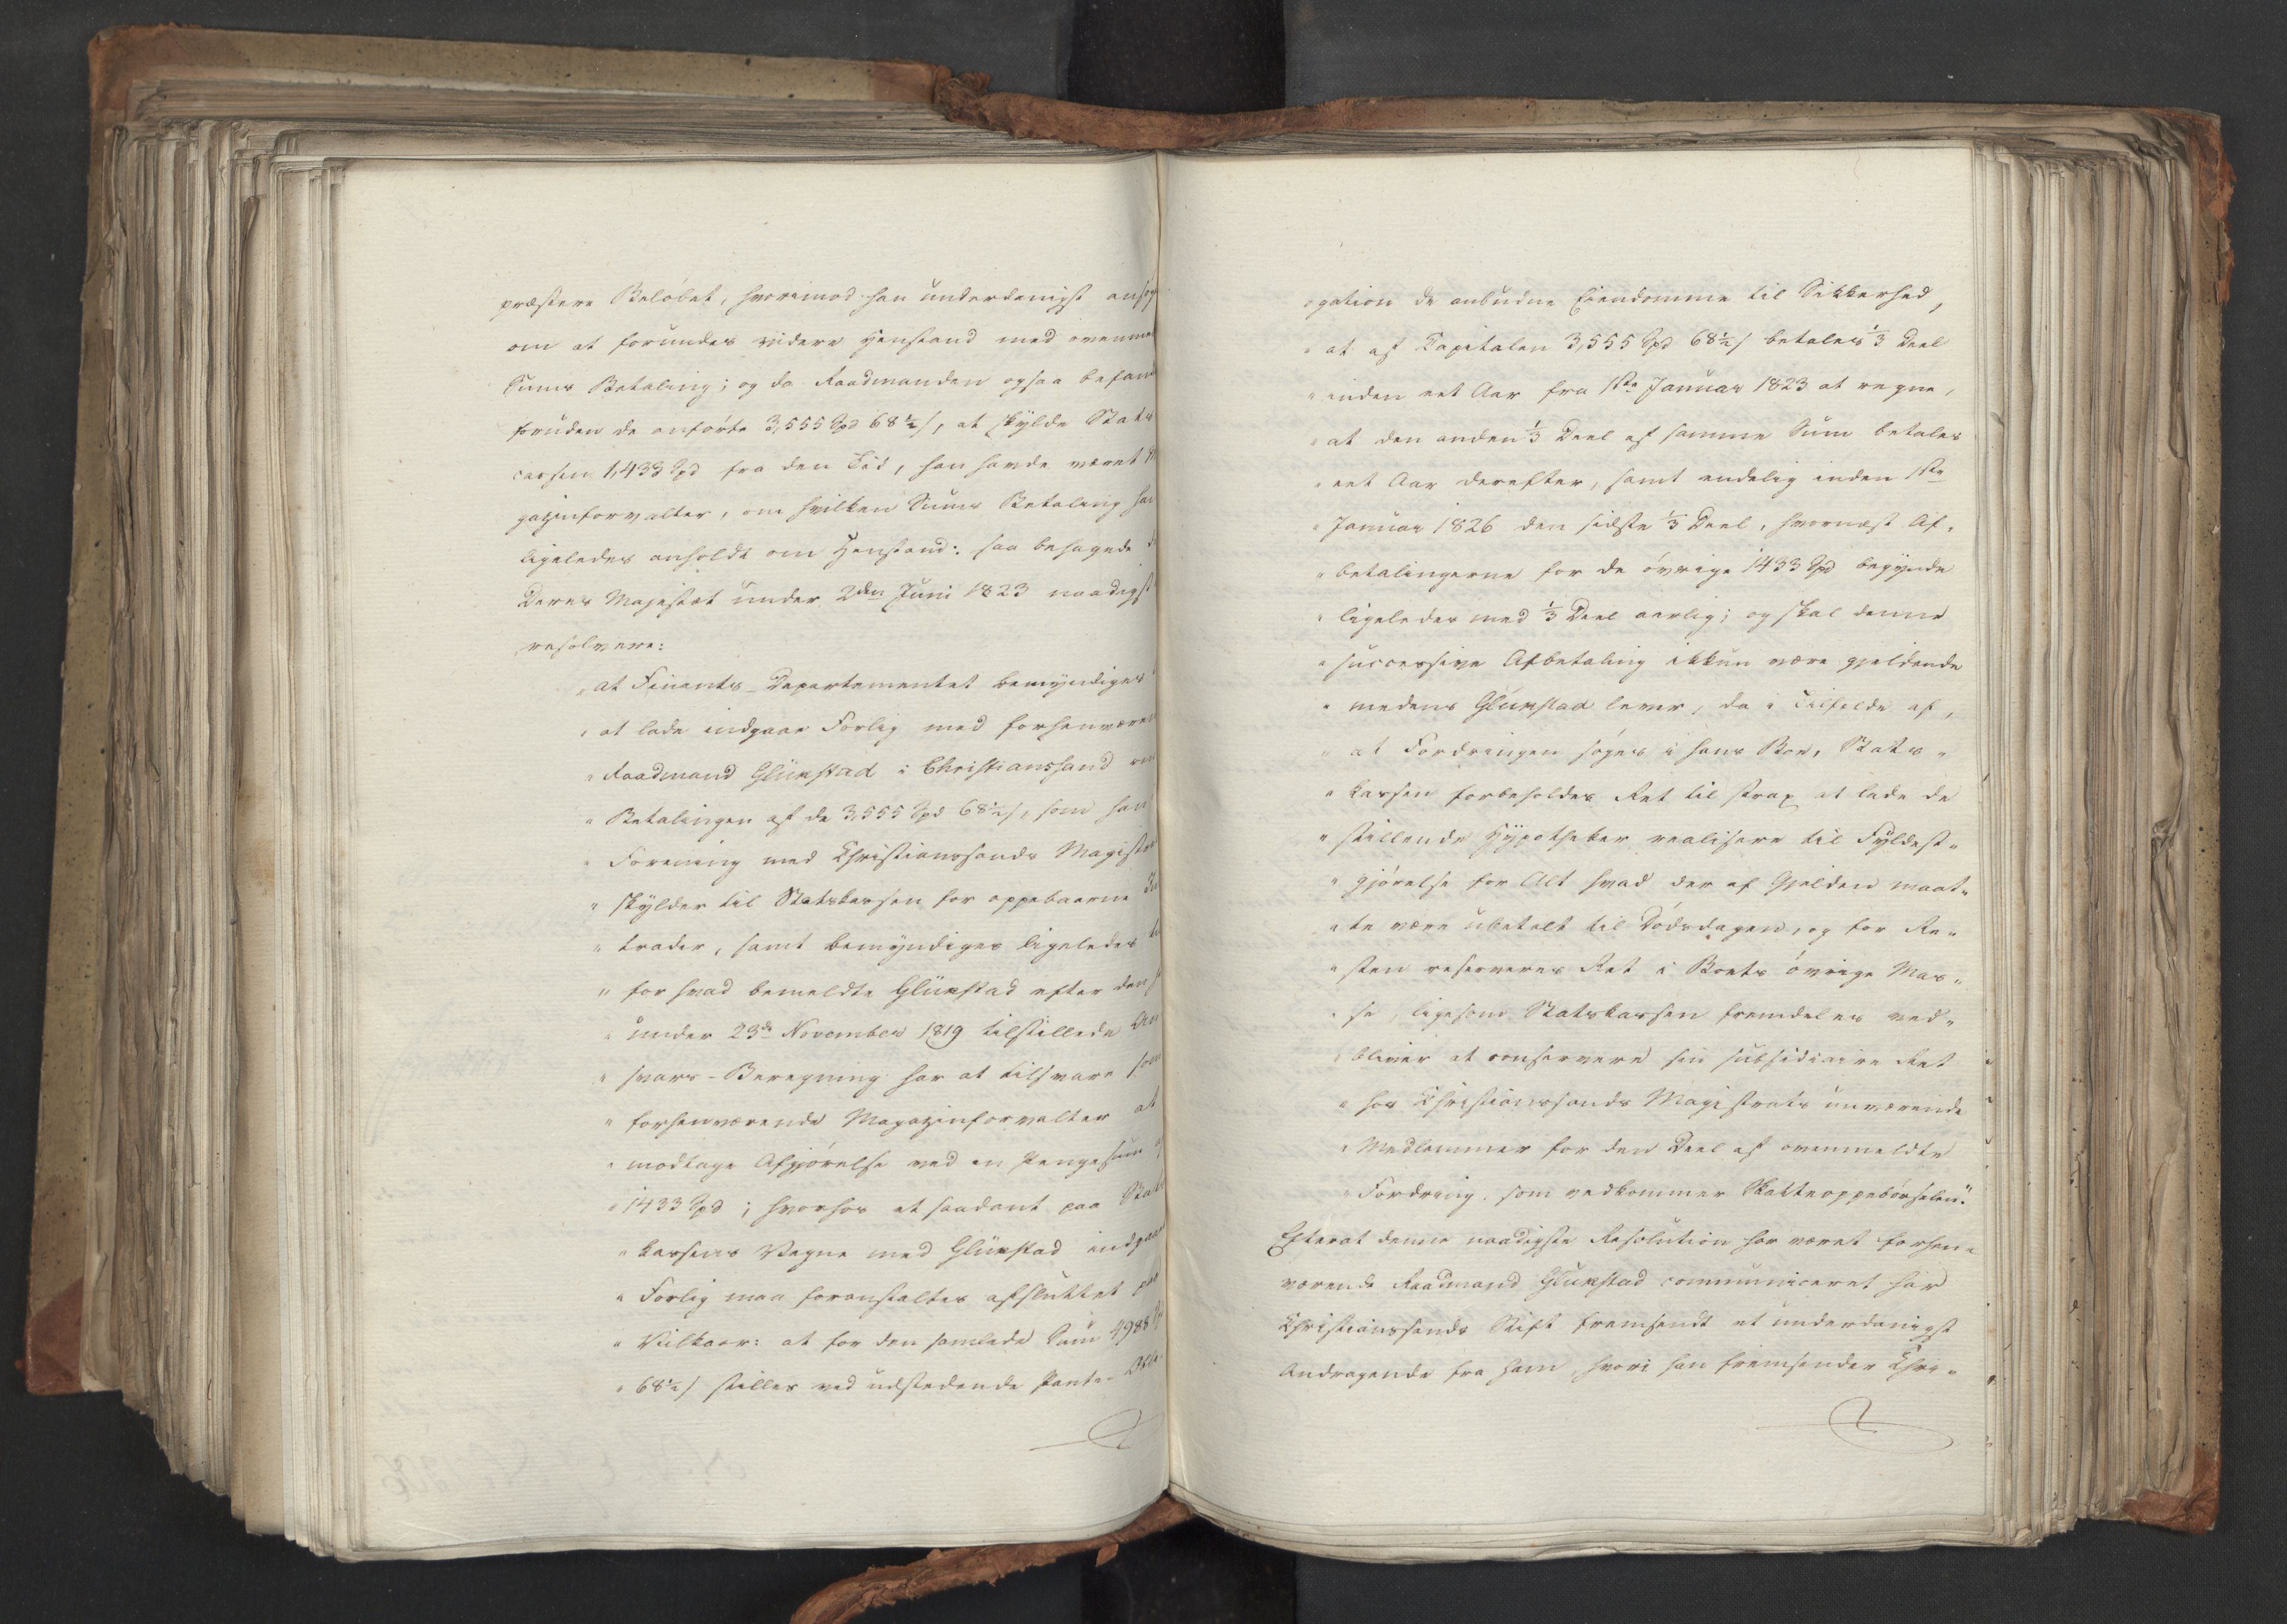 præstere Beløbet, hvorimod han underdanigst ansøg
om at forundes videre Henstand med ovenmel
Sums Betaling; og da Raadmanden ogsaa befand
foruden de anførte 3,555 Spd 68½ /, at skylde Stats
cassen 1,433 Spd fra den Tid, han havde været M
gazinforvalter, om hvilken Sums Betaling han
ligeledes anholdt om Henstand: saa behagede d
Deres Majestæt under 2den Juni 1823 naadigst
resolvere:
" at Finants-Departementet bemyndiges
" at lade indgaae Forlig med forhenværen
" Raadmand Glückstad i Christianssand om
" Betalingen af de 3,555 Spd 68½ /, som han
" Forening med Christianssands Magistrat
" skylder til Statskassen for oppebaarne In
" trader, samt bemyndiges ligeledes til
" for hvad bemeldte Glückstad efter den h
" under 23de November 1819 tilstillede An
" svars-Beregning har at tilsvare som
" forhenværende Magazinforvalter at
" modtage Afgjørelse ved en Pengesum af
" 1433 Spd; hvorhos et saadant paa Stats
" kassens Vegne med Glückstad indgaaet
" Forlig maa foranstaltes afsluttet paa
" Vilkaar: at for den samlede Sum 4988 Sp
" 68½ / stilles ved udstedende Pante-Obli-
gation de anbudne Eiendomme til Sikkerhed,
" at af Capitalen 3,555 Spd 68½ / betales ⅓ Deel
" inden eet Aar fra 1ste Januar 1823 at regne,
" at den anden ⅓ Deel af samme Sum betales
" eet Aar derefter, samt endelig inden 1ste
" Januar 1826 den sidste ⅓ Deel, hvornæst Af-
" betalingerne for de øvrige 1433 Spd begynde
" ligeledes med ⅓ Deel aarlig; og skal denne
" successive Afbetaling ikkun være gjeldende
" medens Glückstad lever, da i Tilfelde af,
" at Fordringen søges i hans Boe, Stats-
" kassen forbeholdes Ret til strax at lade de
" stillende Hypotheker realisere til Fyldest-
" gjørelse for Alt hvad der af Gjelden maat-
" te være ubetalt til Dødsdagen, og for Re-
" sten reserveres Ret i Boets øvrige Mas-
" se, ligesom Statskassen fremdeles ved-
" bliver at conservere sin subsidiaire Ret
" hos Christianssands Magistrats nuværende
" Medlemmer for den Deel af ovenmeldte
" Fordring, som vedkommer Skatteoppebørselen."
Efterat denne naadigste Resolution har været forhen-
værende Raadmand Glückstad communiceret har
Christianssands Stift fremsendt et underdanigst
Andragende fra ham, hvori han fremsender Chri-